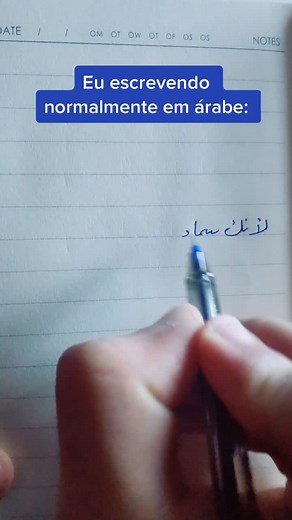 DATE / / OM OT OW OT OF OS OS NOTES
Eu escrevendo
normalmente em árabe:
لأنك سماء